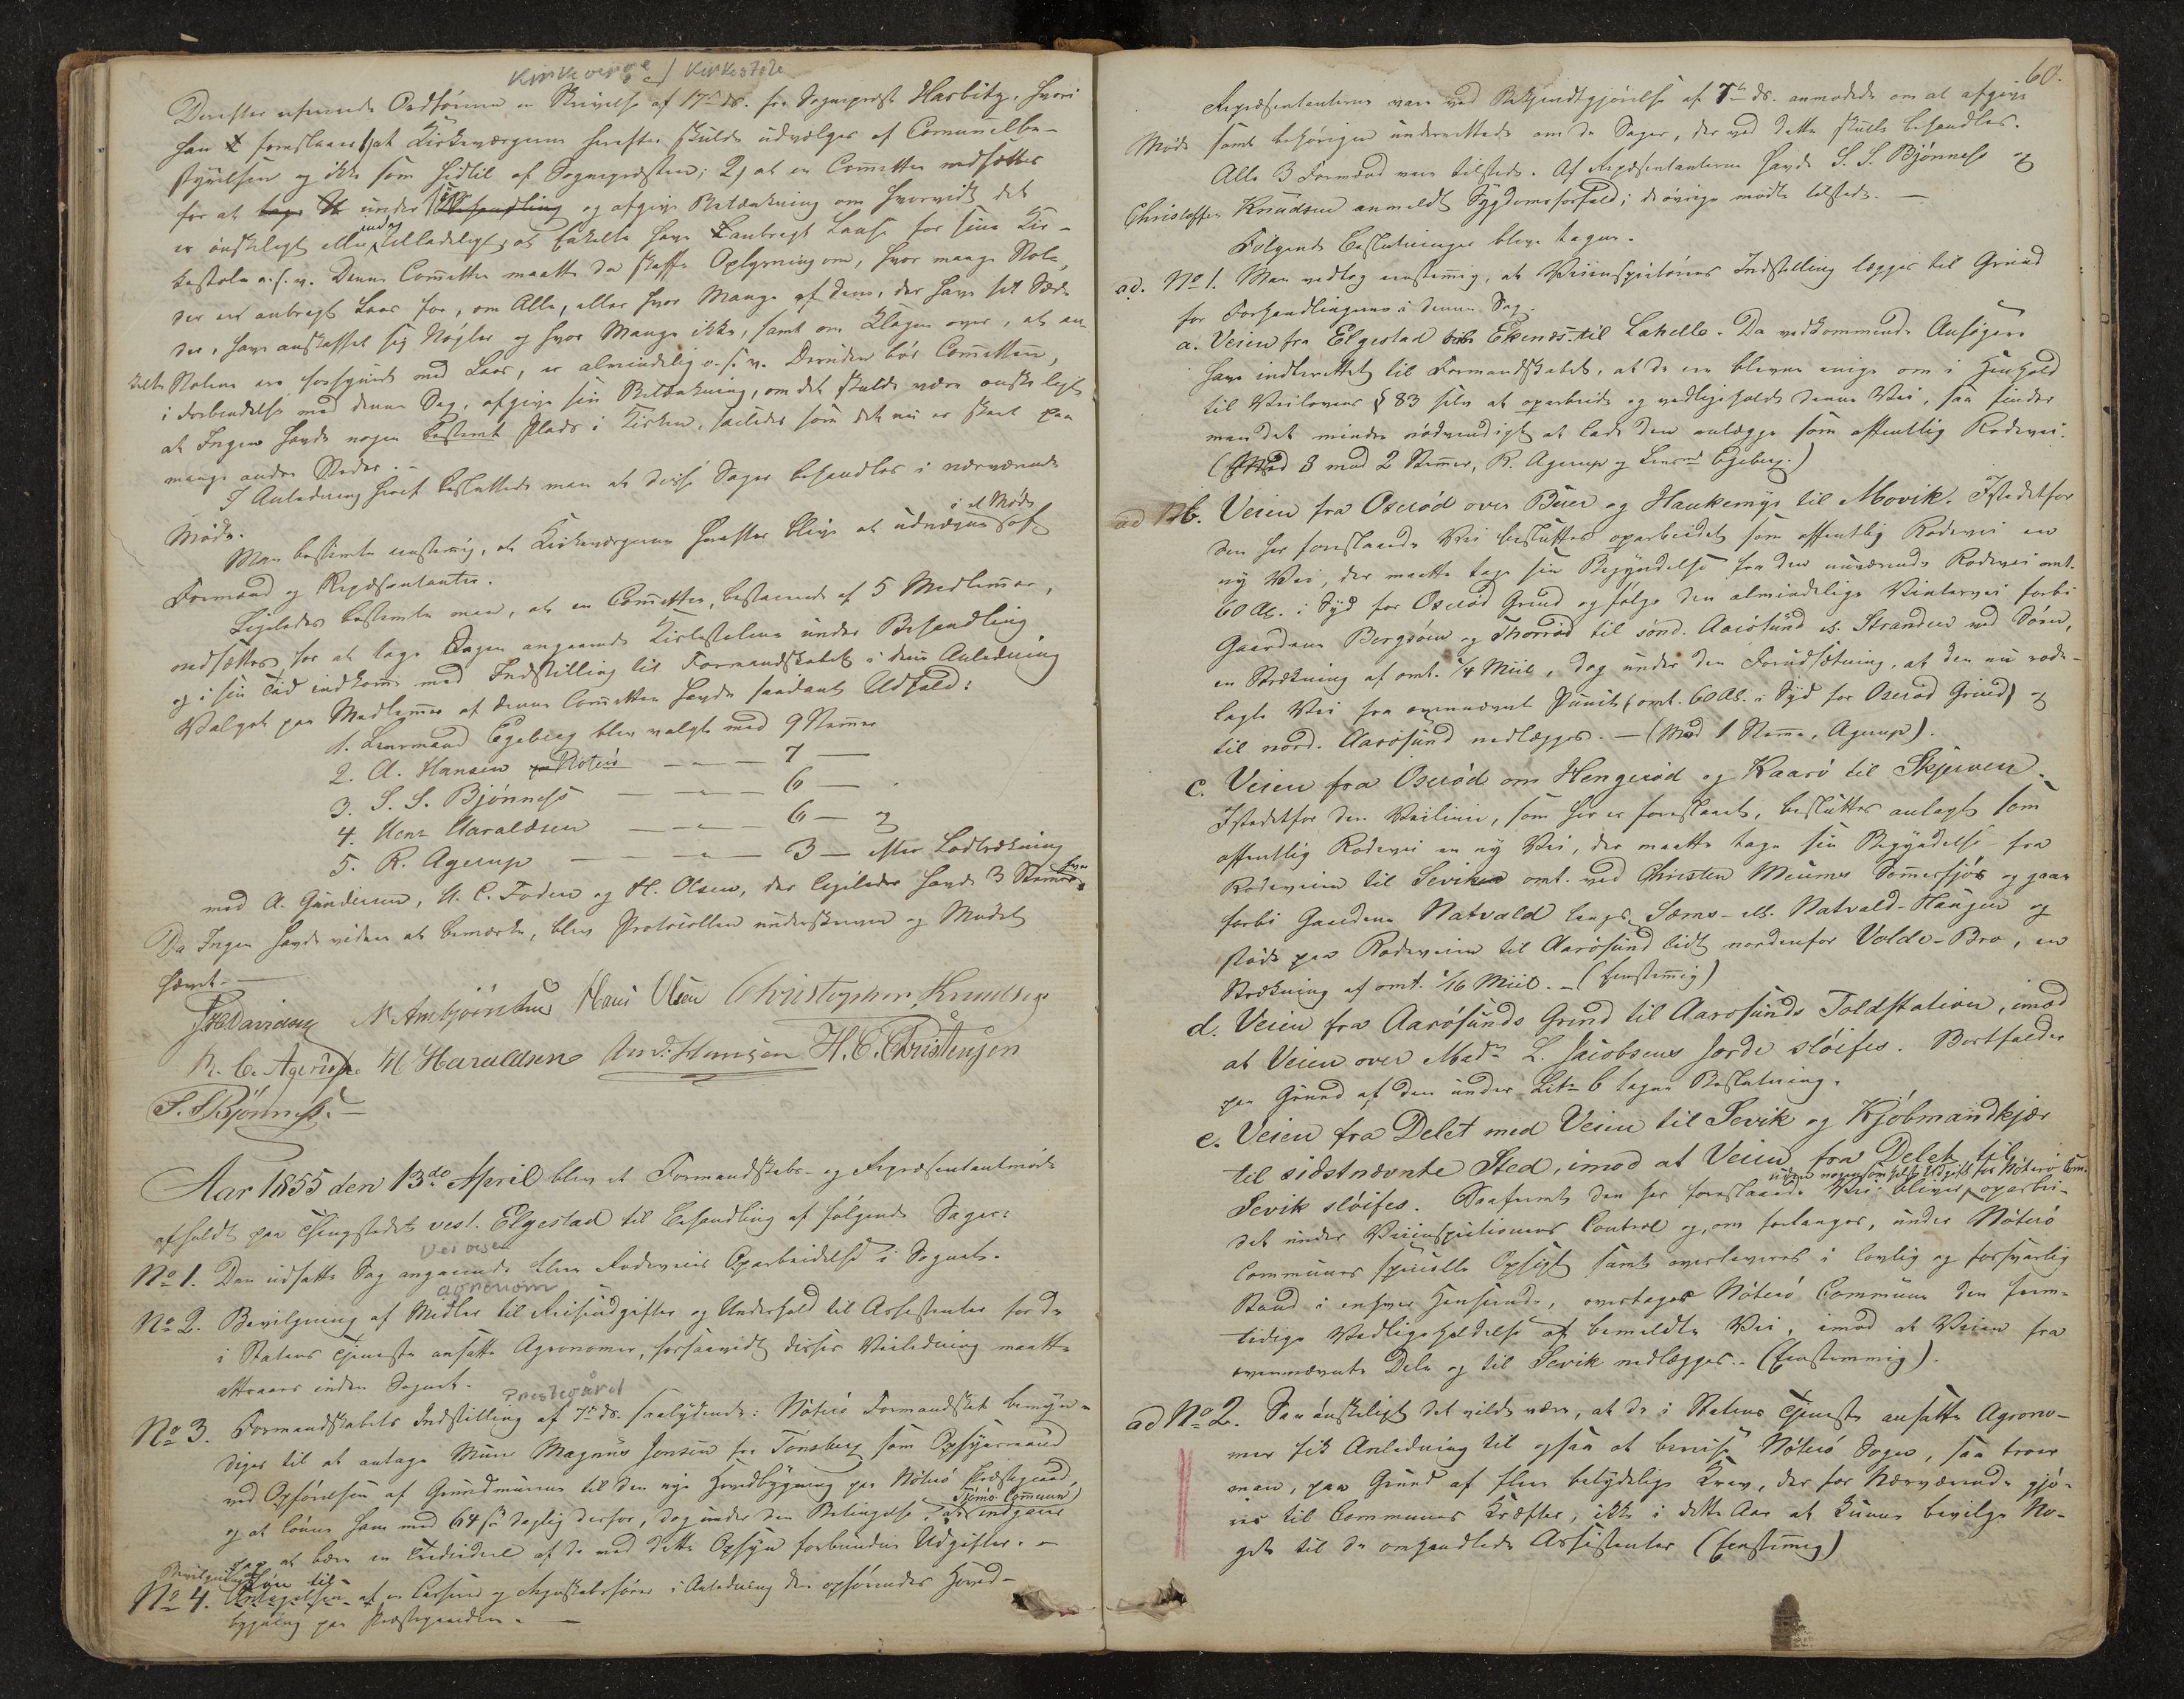 Kirkeverge / Kirkestole
Derefter oplæste Ordføreren en Skrivelse af 17de ds. fra Sognepræst Harbitz, hvori
han foreslaaer 1) at Kirkeværgerne herefter skulde udvælges af Comunebe-
styrelsen og ikke som hidtil af Sognepræsten; 2) at en Comittee nedsættes
for at tage under Behandling og afgive Betænkning om hvorvidt det
er ønskeligt eller endog tilladeligt, at Enkelte have anbragt Laase for sine Kir-
kestole o.s.v. Denne Comittee maatte da skaffe Oplysning om, hvor mange Stole,
der ere anbragt Laas for, om Alle, eller hvor Mange af dem, der have sit Sæde
der, have anskaffet sig Nøgler og hvor Mange ikke, samt om Klagen over, at en-
kelte Stolene ere forsynede med Laas, er almindelig o.s.v. Desuden bør Comitteen,
i Forbindelse med denne Sag, afgive sin Betænkning, om det skulde være ønskeligt
at Ingen havde nogen bestemt Plads i Kirken, saaledes som det nu er skeet paa
mange andre Steder. -
I Anledning heraf besluttede man at disse Sager behandles i nærværende
Møde.
Man bestemte eenstemig, at Kirkeværgerne herefter blive at udnævne i et Møde af
Formænd og Repræsentanter.
Ligeledes bestemte man, at en Comittee, bestaaende af 5 Medlemmer,
nedsættes for at tage Sagen angaaende Kirkestolene under Behandling
og i sin Tid indkomme med Indstilling til Formandskabet i den Anledning
Valget paa Medlemmer af denne Comittee havde saadant Udfald:
1. Lensmand Egeberg blev valgt med 9 Stemmer
2. A. Hansen Roterö — " — 7 —
3. S. S. Bjönness — " — 6 —
4. Henr Haraldsen — " — 6 — og
5. R. Agerup — " — 3 — efter Lodtrækning
med A. Gundersen, H. C. Foden og H. Olsen, der ligeledes havde 3 Stemmer hver
Da Ingen havde videre at bemærke, blev Protocollen underskreven og Mødet
hævet. —
Davidsen N Ambjörnsen Hans Olsen Christopher Knudsen
R. C. Agerup H Haraldsen And. Hansen H. C. Christensen
S. S Bjönness. —
Aar 1855 den 13de April blev et Formandskabs- og Repræsentantmøde
afholdt paa Thingstedet vest. Elgestad til Behandling af følgende Sager:
Veivæsen
No 1. Den udsatte Sag angaaende flere Rodeveies Oparbeidelse i Sognet.
agronom
No 2. Bevilgning af Midler til Reiseudgifter og Underhold til Assistenter for de
i Statens Tjeneste ansatte Agronomer, forsaavidt disses Veiledning maatte
attraaes inden Sognet.
Prestegård
No 3. Formandskabets Indstilling af 7de ds. saalydende: Nöterö Formandskab bemyn-
diges til at antage Murer Magnus Jensen fra Tönsberg som Opsynsmand
ved Opførelsen af Grundmuren til den nye Hovedbygning paa Nöterö Præstegaard,
og at lønne ham med 64 ß daglig derfor, dog under den Betingelse, at Tjömö Commune indgaaer
paa at bære en Trediedeel af de med dette Opsyn forbundne Udgifter. —
Bevilgning af Løn til
No 4. Antagelsen af en Casserer og Regnskabsfører i Anledning den opførendes Hoved-
bygning paa Præstegaarden. —
60.
Repræsentanterne vare ved Bekjendtgjørelse af 7de ds. anmodede om at afgive
Møde samt behørigen underrettede om de Sager, der ved dette skulle behandles.
Alle 3 Formænd vare tilstede. Af Repræsentanterne havde S. S. Bjönness og
Christoffer Knudsen anmeldt Sygdomsforfald; de øvrige mødte tilstede. —
Følgende Beslutninger bleve tagne.
ad. No 1. Man vedtog eenstemig, at Veiinspecteurens Indstilling lægges til Grund
for Forhandlingerne i denne Sag.
a. Veien fra Elgestad Ekenes til Lakelle. Da vedkommende Ansøgere
have indberettet til Formandskabet, at de ere blevne enige om i Henhold
til Veilovens § 83 selv at oparbeide og vedligeholde denne Vei, saa finder
man det mindre nødvendigt at lade den anlægge som offentlig Rodevei.
(Mod 2 Stemmer, R. Agerup og Lensmd Egeberg.)
ad 1 b. Veien fra Oserød over Buer og Haukemyr til Movik. Istedetfor
den her foreslaaede Vei besluttes oparbeidet som offentlig Rodevei en
ny Vei, der maatte tage sin Begyndelse fra den nuværende Rodevei omt.
60 Al. i Syd for Oserød Grind og følge den almindelige Vintervei forbi
Gaardene Bergsöen og Thorröd til sönd. Aarösund el. Stranden ved Söen,
en Strækning af omt. 1/4 Miil, dog under den Forudsætning, at den nu rode-
lagte Vei fra ovennævnte Punit (omt. 60 Al. i Syd for Oseröd Grind) og
til nord. Aarösund nedlægges. — (Mod 1 Stemme, Agerup).
c. Veien fra Oseröd om Hengeröd og Kaarö til Skjerven.
Istedetfor den Veilinie, som her er foreslaaet, besluttes anlagt som
offentlig Rodevei en ny Vei, der maatte tage sin Begyndelse fra
Rodeveien til Seviken omt. ved Christen Meums Sommerfjös og gaar
forbi Gaardene Natvald langs Sems- el. Natvald-Haugen og
støde paa Rodeveien til Aarösund lidt nordenfor Volde-Bro, en
Strækning af omt. 1/16 Miil. — (Eenstemmig)
d. Veien fra Aarösunds Grind til Aarosunds Toldstation, imod
at Veien over Madm L. Jacobsens Jorde slöifes. Bortfalder
paa Grund af den under Litr. b tagne Beslutning.
e. Veien fra Delet med Veien til Sevik og Kjöbmandkjær
til sidstnævnte Sted, imod at Veien fra Delet til
Sevik slöifes. Saafremt den her foreslaaede Vei bliver uden nogensomhelst Udgift for Nöterö Com. oparbei-
det under Veiinspecteurens Control og, om forlanges, under Nöterö
Communes specielle Opsigt samt overleveres i lovlig og forsvarlig
Stand i enhver Henseende, overtages Nöterö Commune den frem-
tidige Vedligeholdelse af bemeldte Vei, imod at Veien fra
ovennævnte Dele og til Sevik nedlægges. (Eenstemmig).
ad No 2. Saa ønskeligt det vilde være, at de i Statens Tjeneste ansatte Agrono-
mer fik Anledning til ogsaa at bereise Nöterö Sogn, saa troer
man, paa Grund af flere betydelige Krav, der for Nærværende gjø-
res til Communens Kræfter, ikke i dette Aar at kunne bevilge No-
get til de omhandlede Assistenter (Eenstemmig)